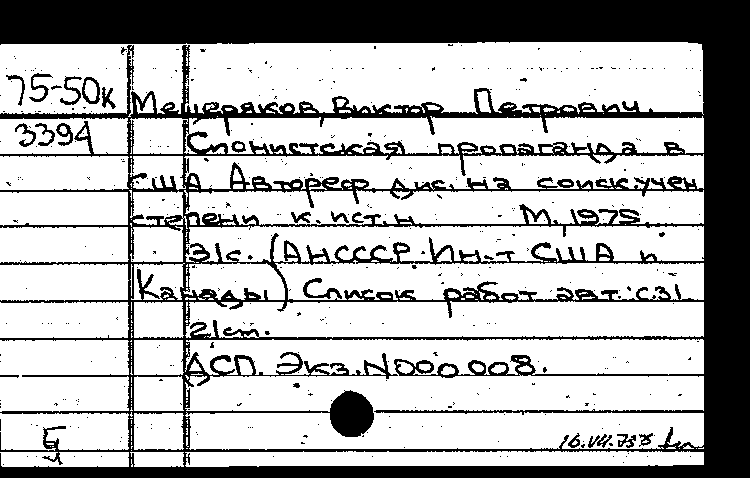 75-50к
3394
Мещеряков, Виктор Петрович.
Сионистская пропаганда в
США. Автореф. дис. на соиск. учен.
степени к. ист. н. М., 1975.
31с. (АН СССР. Ин-т США и
Канады). Список работ авт.: с.31.
21cm.
ДСП. Экз. N000008.
16.VII.75